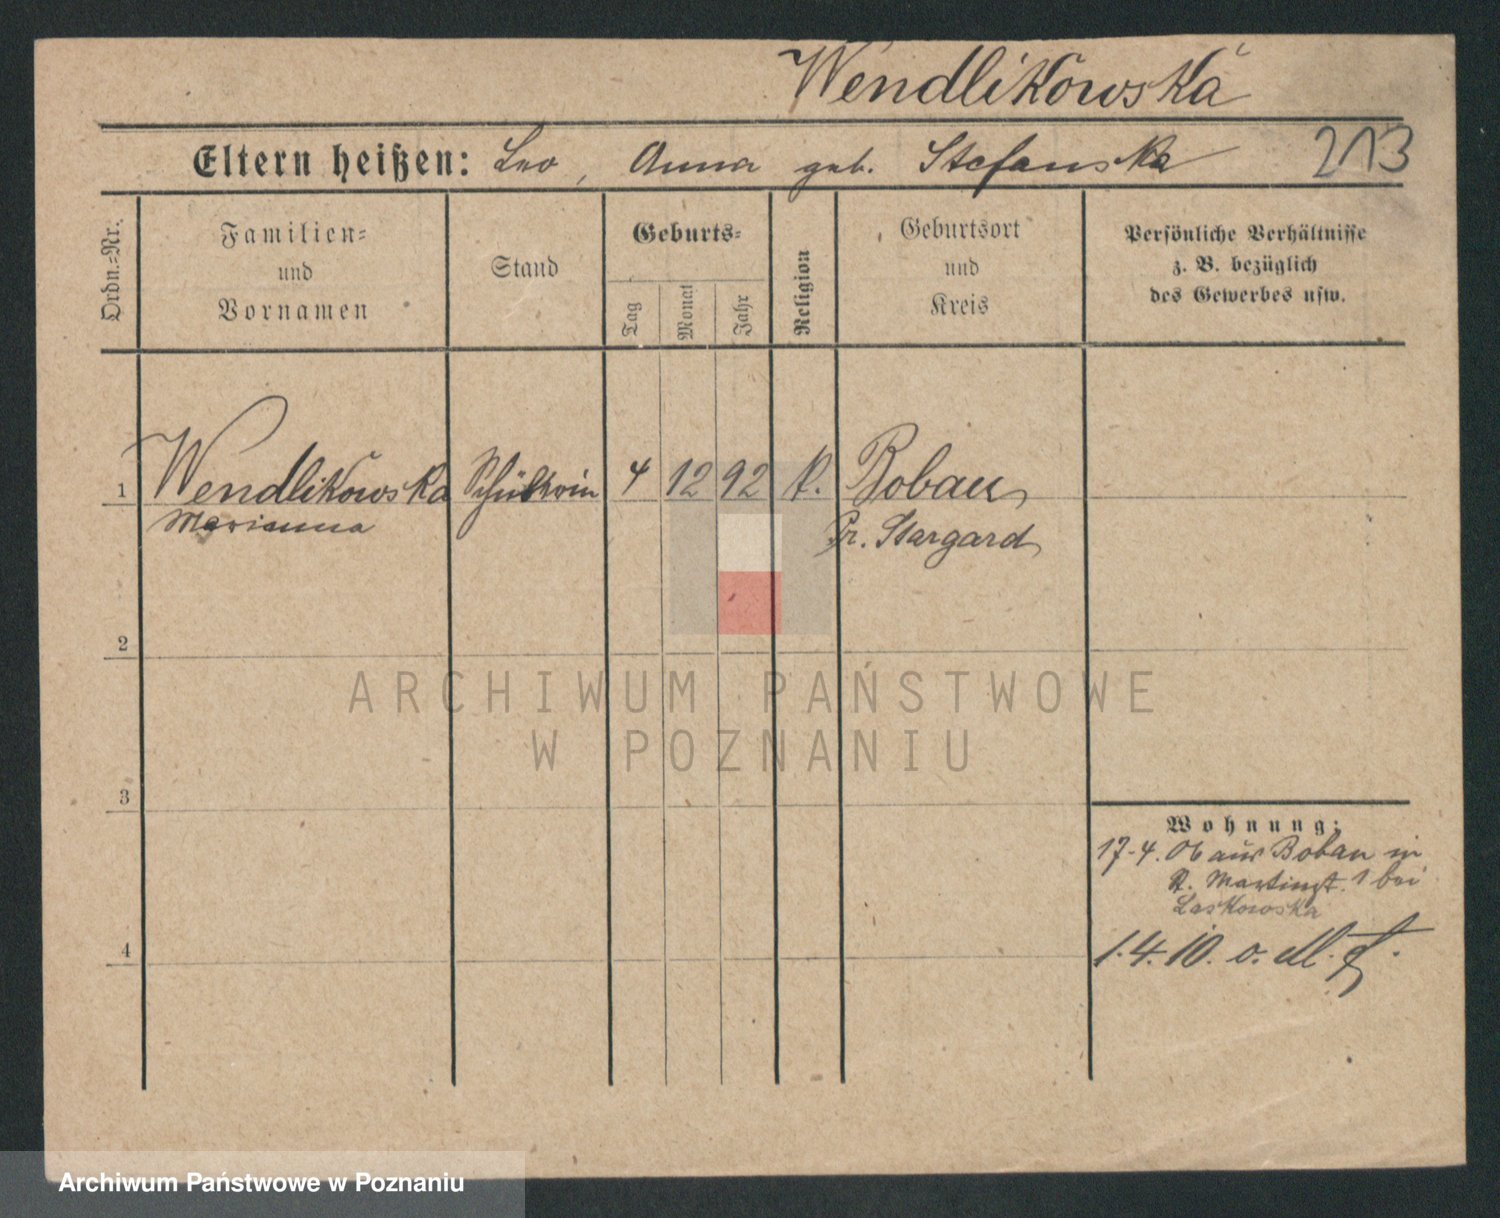 Wendlikowska
Eltern heißen: Leo, Anna geb. Stefanska
213
Ordn.=Nr.
Familien=
und
Vornamen
Stand
Geburts=
Tag
Monat
Jahr
Religion
Geburtsort
und
Kreis
Persönliche Verhältnisse
z. B. bezüglich
des Gewerbes usw.
1 Wendlikowska Schülerin 4 12 92 K. Bobau
Marianna Pr. Stargard
2
ARCHIWUM PAŃSTWOWE
W POZNANIU
3
Wohnung:
17-4. 06 aus Bobau in
St. Martinst. 1 bei
Laskowska
4
1.4.10. o. M. f.
Archiwum Państwowe w Poznaniu